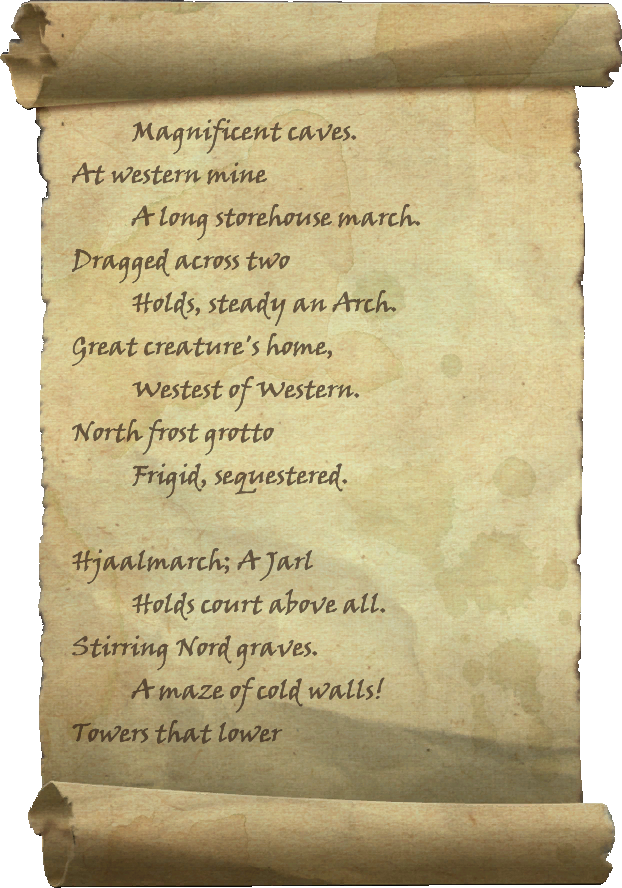 Magnificent caves.
At western mine
A long storehouse march.
Dragged across two
Holds, steady an Arch.
Great creature's home,
Westest of Western.
North frost grotto
Frigid, sequestered.
Hjaalmarch; A Jarl
Holds court above all.
Stirring Nord graves.
A maze of cold walls!
Towers that lower